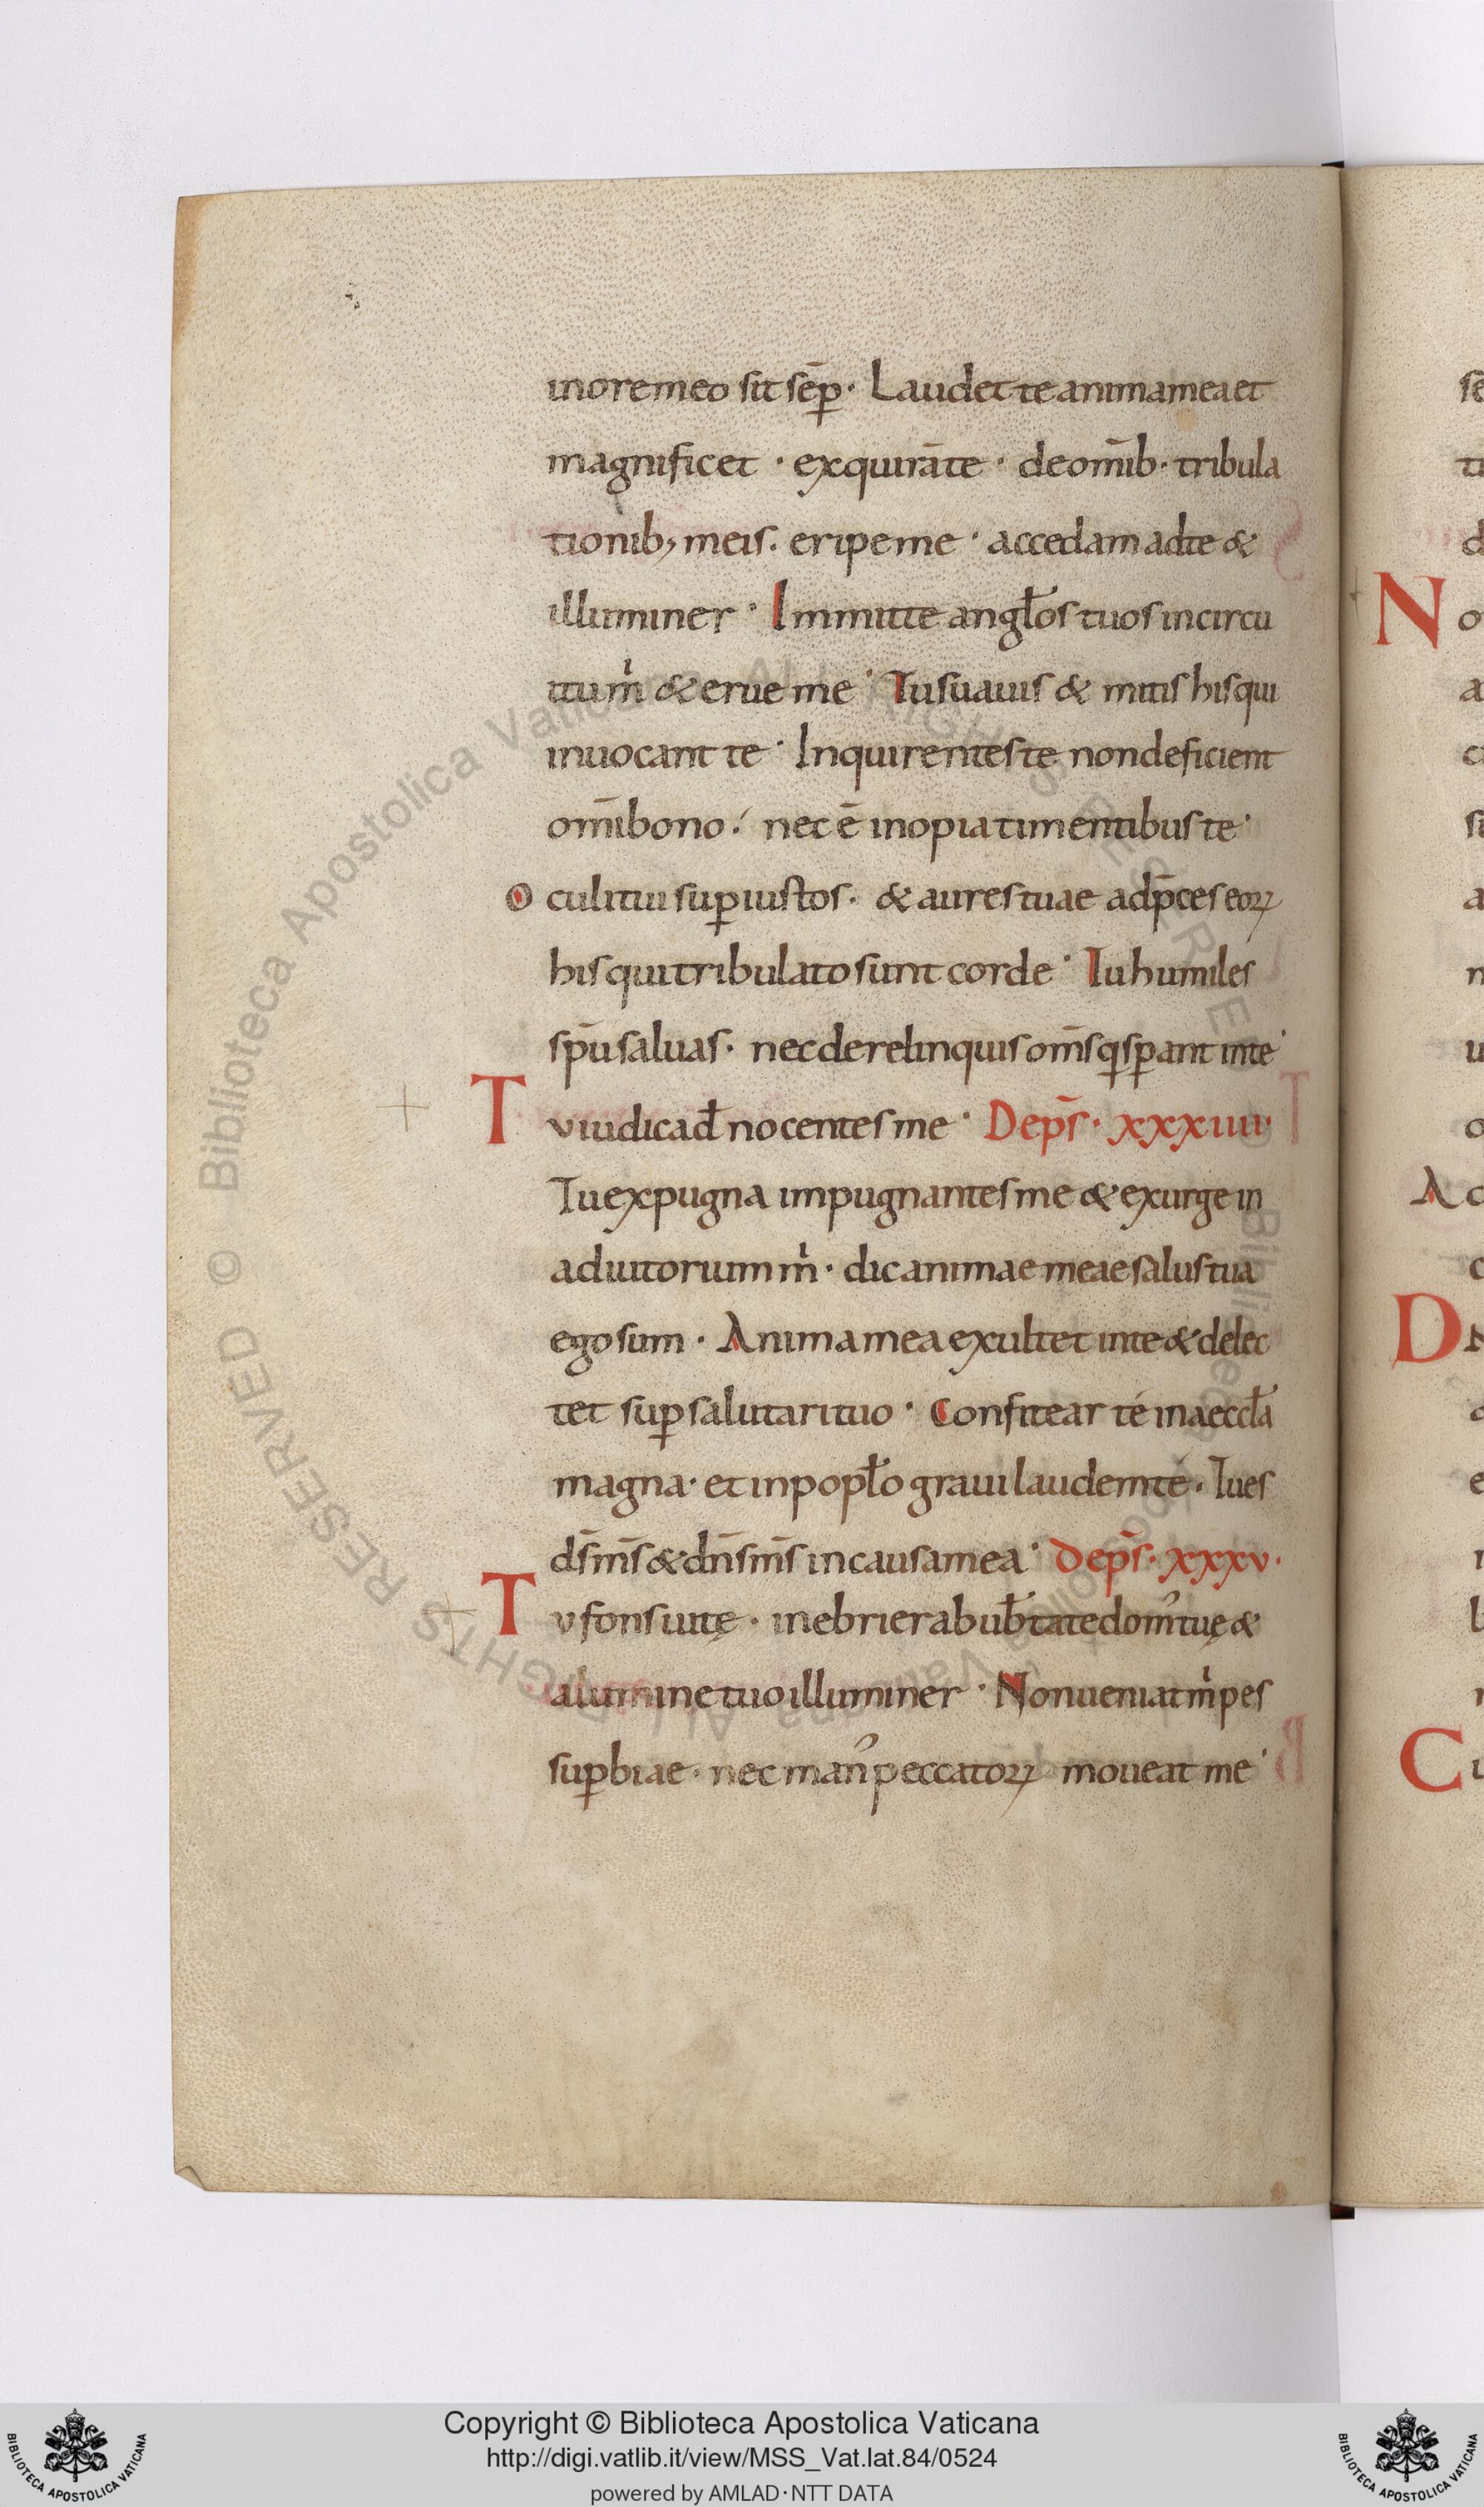 inoremeo sit sēp̱· Laudet te animamea et
magnificet · exquirāte · deom̄ib· tribula
tionib; meis. eripe me · accedam adte &
illuminer · Immitte angl̄os tuos incircu
itum̍ & erue me · Tu suauis & mitis his qui
inuocant te · Inquirentes te non deficient
om̄ibono ·́ nec ē inopia timentibus te ·
O culi tui suꝑ iustos · & aures tuae adp̄ces eoꝝ
his qui tribulato sunt corde · Tu humiles
sp̄u saluas · nec derelinquis om̄s q̍ sꝑant inte ·
T u iudicad̄ nocentes me · De ps̄ · xxxiiii·
Tu expugna impugnantes me & exurge in
adiutorium m̍ · dic animae meae salus tua
ego sum · Anima mea exultet inte & delec
tet suꝑ salutari tuo · Confitear té in aeccl̄a
magna · et in popl̄o graui laudem té · Tu es
ds̄ ms̄ & dn̄s ms̄ in causa mea · De ps̄ · xxxv·
T u fons uitę · inebrier ab ub̄tate dom᾿ tuę &
a lumine tuo illuminer · Non ueniat m̍ pes
suꝑbiae · nec man᾿ peccatoꝝ moueat me ·
N
A
D
C
Copyright © Biblioteca Apostolica Vaticana
http://digi.vatlib.it/view/MSS_Vat.lat.84/0524
powered by AMLAD·NTT DATA
BIBLIOTECA APOSTOLICA VATICANA
BIBLIOTECA APOSTOLICA VATICANA